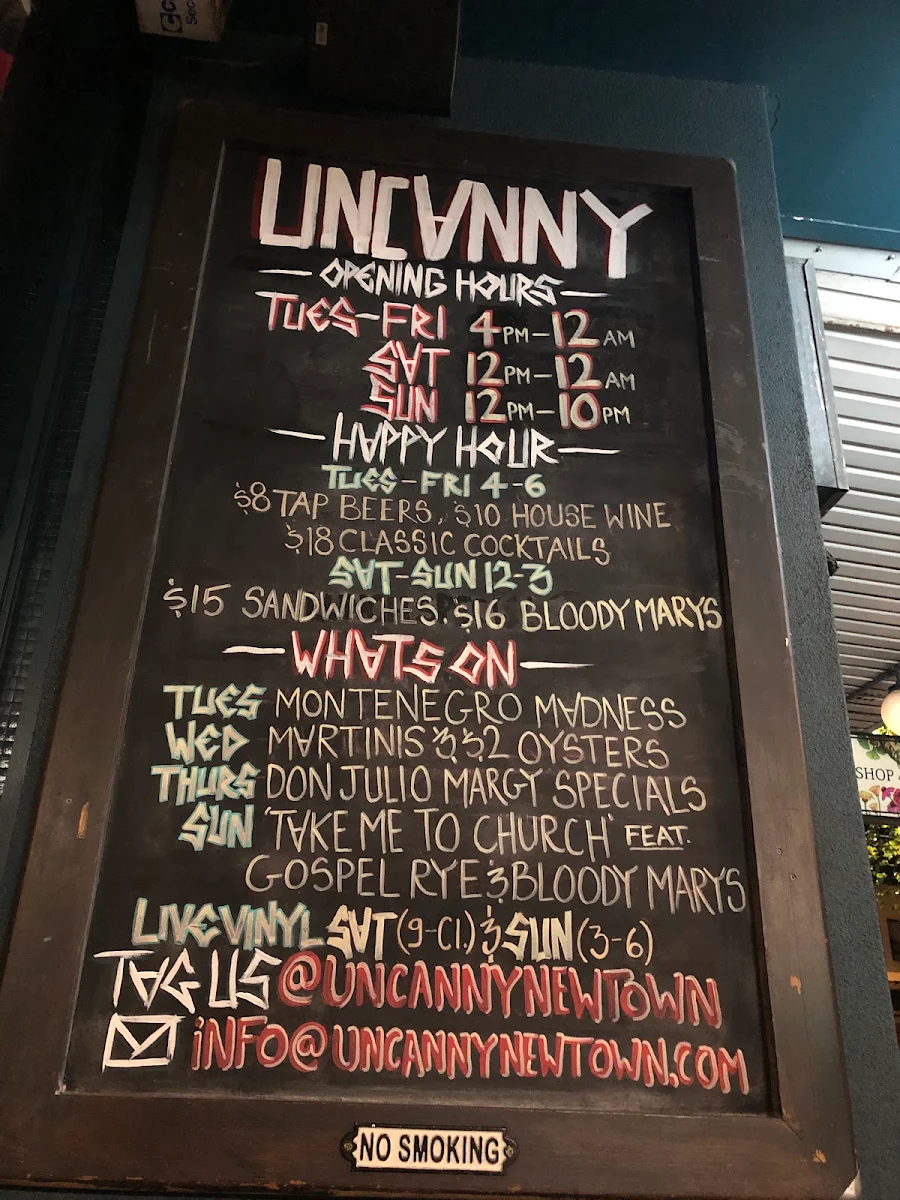 UNCANNY
OPENING HOURS
TUES-FRI 4PM-12AM
SAT 12PM-12AM
SUN 12PM-10PM
HAPPY HOUR
TUES-FRI 4-6
$8 TAP BEERS, $10 HOUSE WINE
$18 CLASSIC COCKTAILS
SAT-SUN 12-3
$15 SANDWICHES. $16 BLOODY MARYS
WHATS ON
TUES MONTENEGRO MADNESS
WED MARTINIS & $2 OYSTERS
THURS DON JULIO MARGY SPECIALS
SUN 'TAKE ME TO CHURCH' FEAT.
GOSPEL RYE & BLOODY MARYS
LIVE VINYL SAT (9-Cl.) & SUN (3-6)
TAG US @UNCANNYNEWTOWN
iNFO@UNCANNYNEWTOWN.COM
NO SMOKING
SHOP